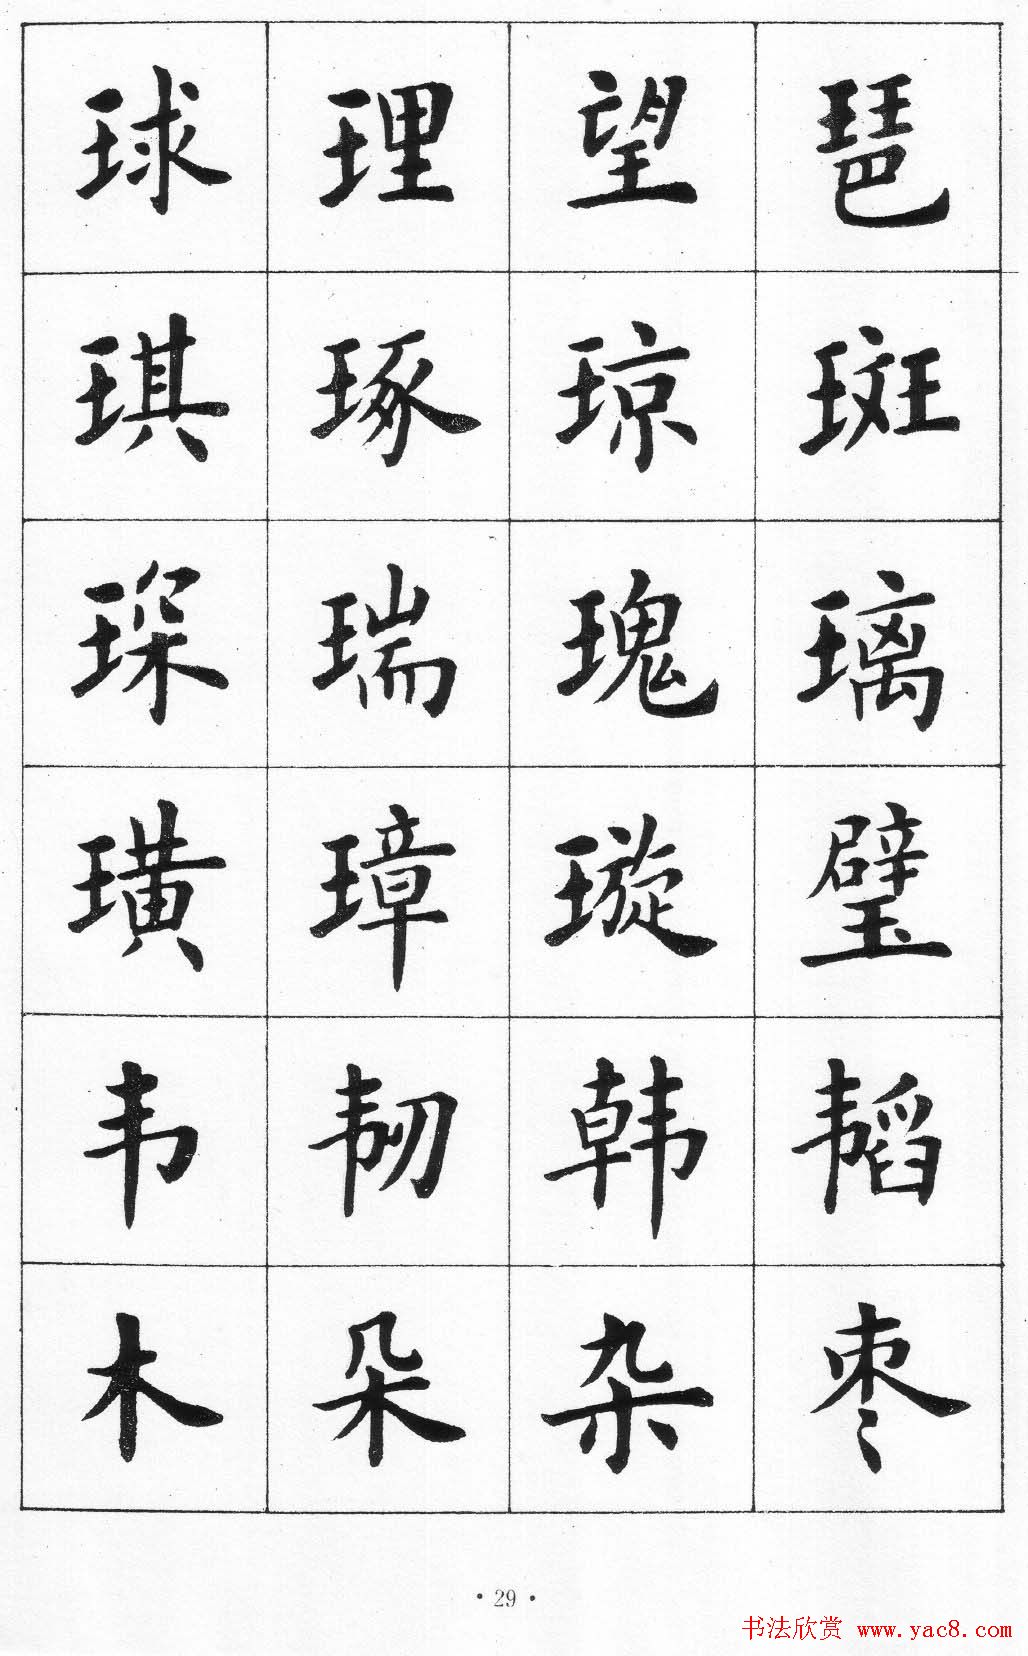 球理望琶
琪琢琼斑
琛瑞瑰璃
璜璋璇璧
韦韧韩韬
木朵杂枣
·29·
书法欣赏 www.yac8.com